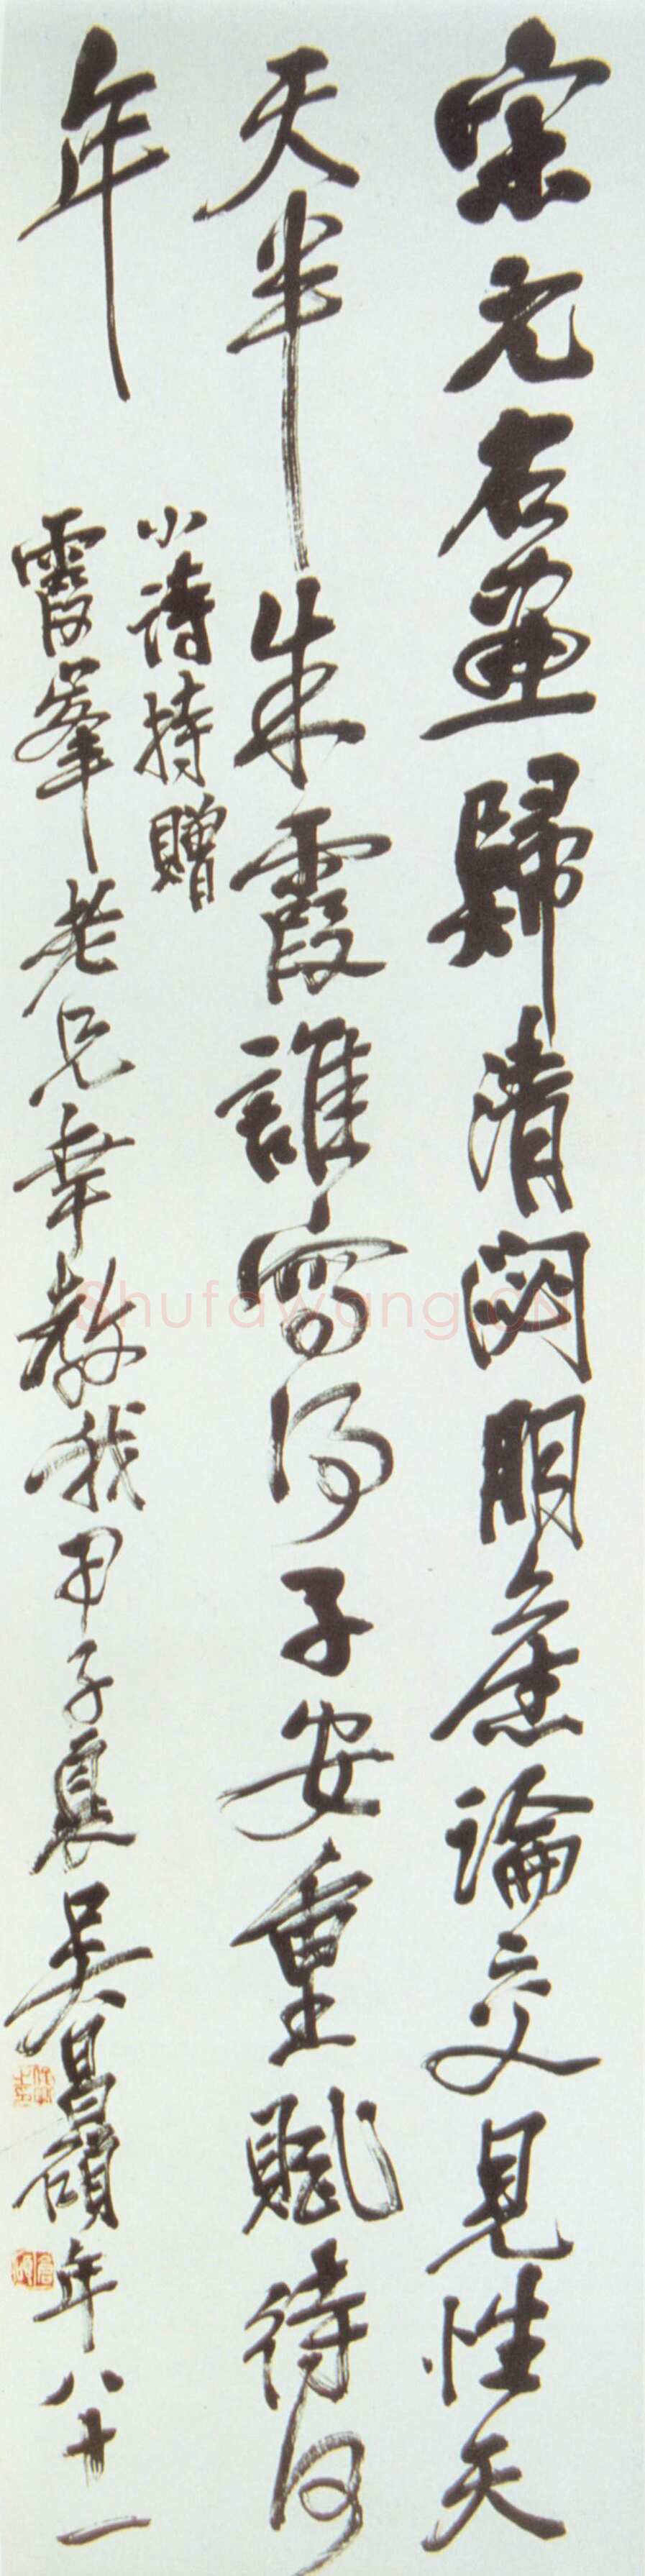 宋元右画歸清閟朋舊論交見性天
天半朱霞誰寫得子安重賦待何
年
小詩持贈
霞峯老兄幸教我甲子夏吳昌碩年八十一
Shufawang.CN